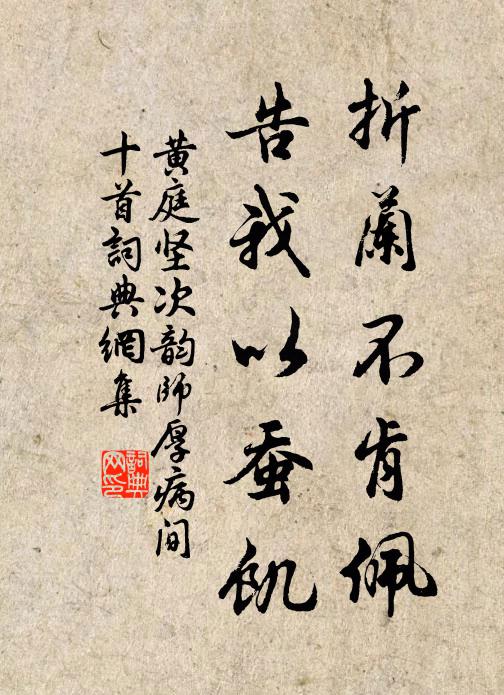 折蘭不肯佩
告我以蚕飢
黄庭坚次韵師厚病间
十首詞典網集
詞典
网印